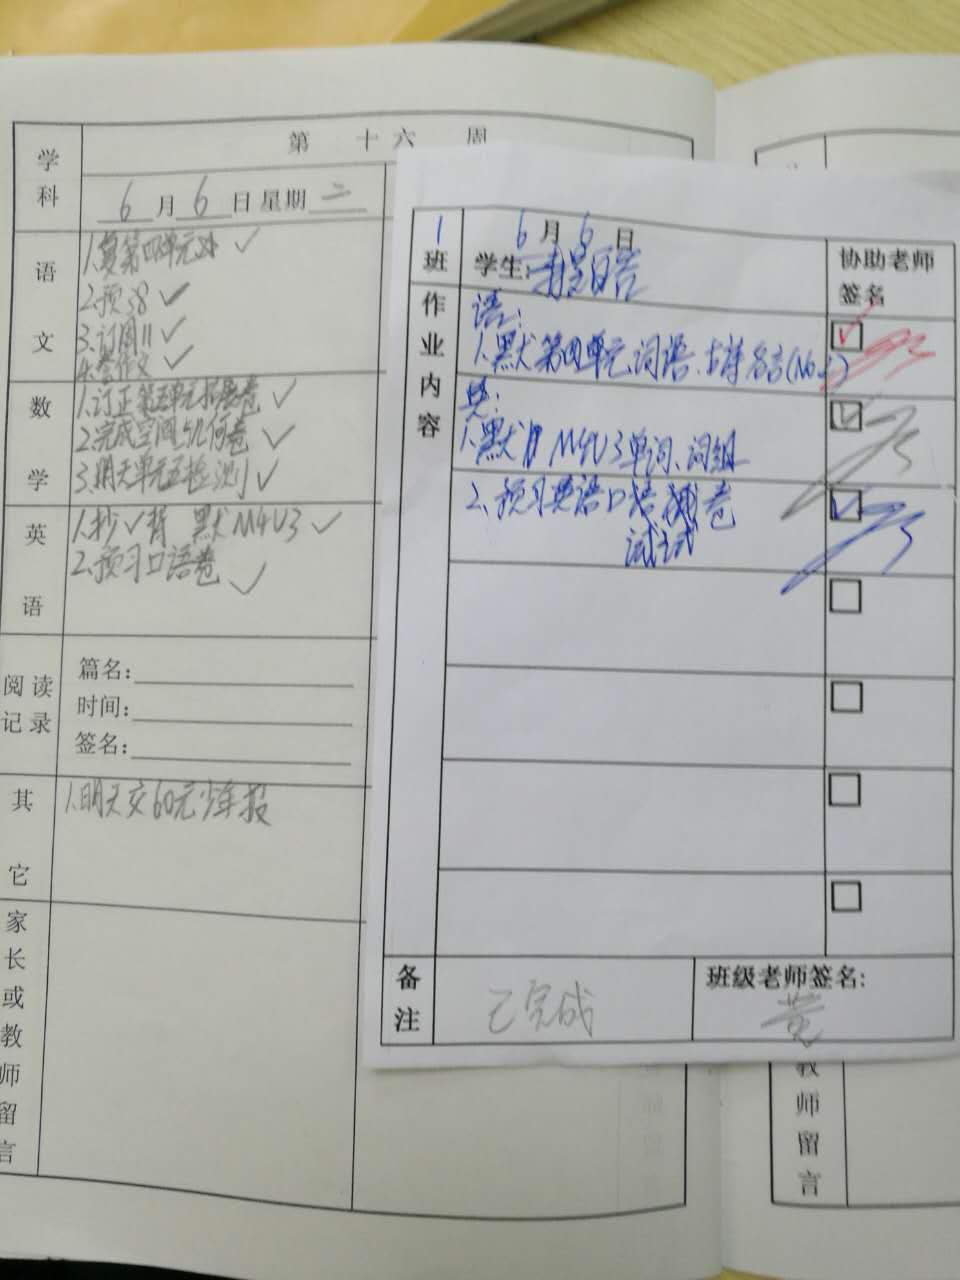 学科
第 十六 周
6月6日 星期二
语文
1.复第四单元
2.预38
3.订周11
4.卷作文
数学
1.订正第五单元拓展卷
2.完成空间几何卷
3.明天单元五检测
英语
1.抄 背 默M4U3
2.预习口语卷
阅读记录
篇名:
时间:
签名:
其它
1.明天交60元少年报
家长或教师留言
1班
6月6日
学生:
协助老师签名
作业内容
语:
1.默第四单元词语、古诗名言
英:
1.默 M4U3单词、词组
2.预习英语口语 卷
试
备注
已完成
班级老师签名:
黄
教师留言